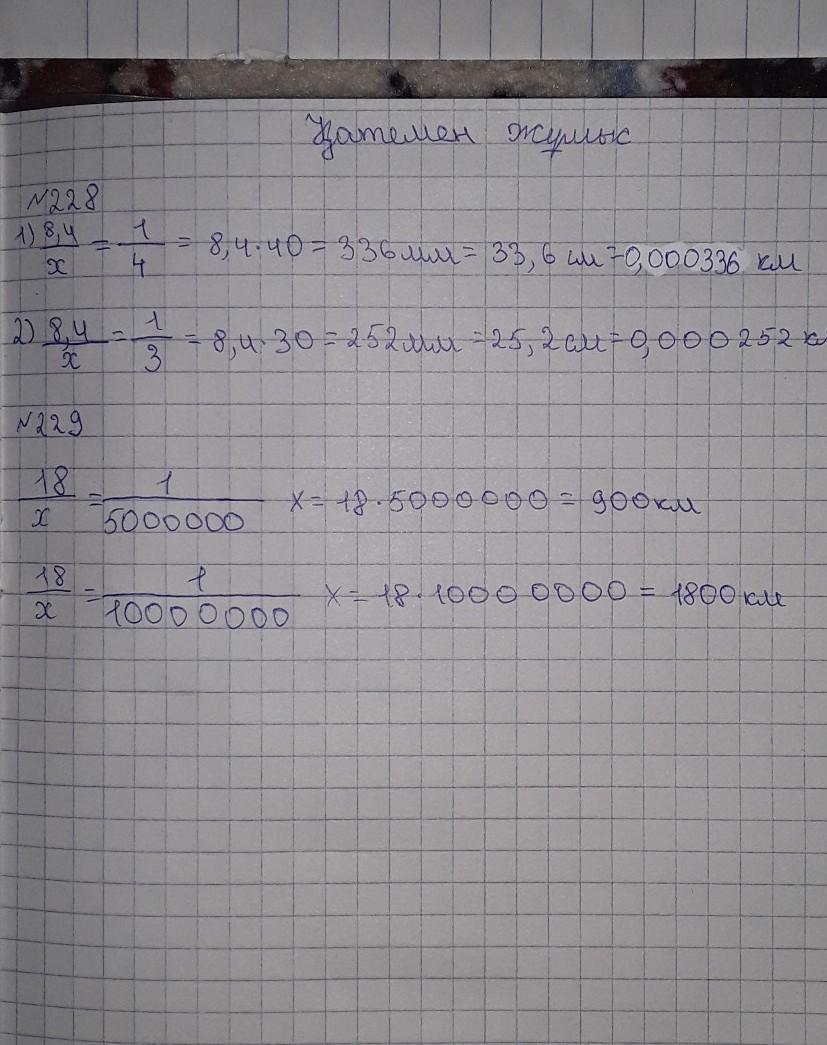 Қатемен жұмыс
№228
1) 8,4/x = 1/4 = 8,4·40 = 336мм = 33,6 см = 0,000336 км
2) 8,4/x = 1/3 = 8,4·30 = 252мм = 25,2см = 0,000252 к
№229
18/x = 1/5000000 x = 18·5000000 = 900км
18/x = 1/10000000 x = 18·10000000 = 1800км